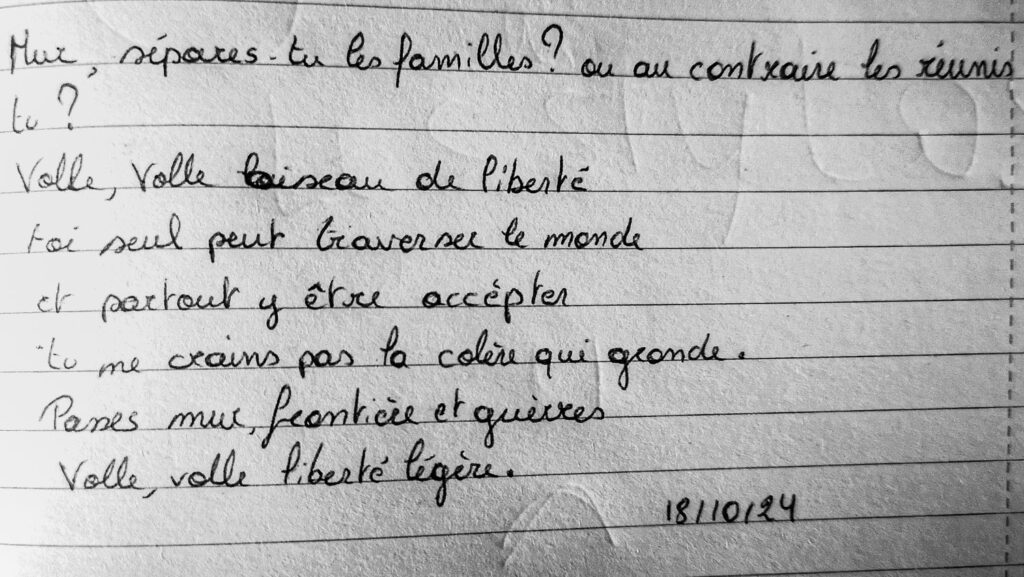 Mur, sépares-tu les familles ? ou au contraire les réunis
tu ?
Volle, Volle loiseau de liberté
toi seul peut traverser le monde
et partout y être accépter
tu ne crains pas la colère qui gronde.
Passes mur, frontière et guèrres
Volle, volle liberté légère.
18/10/24